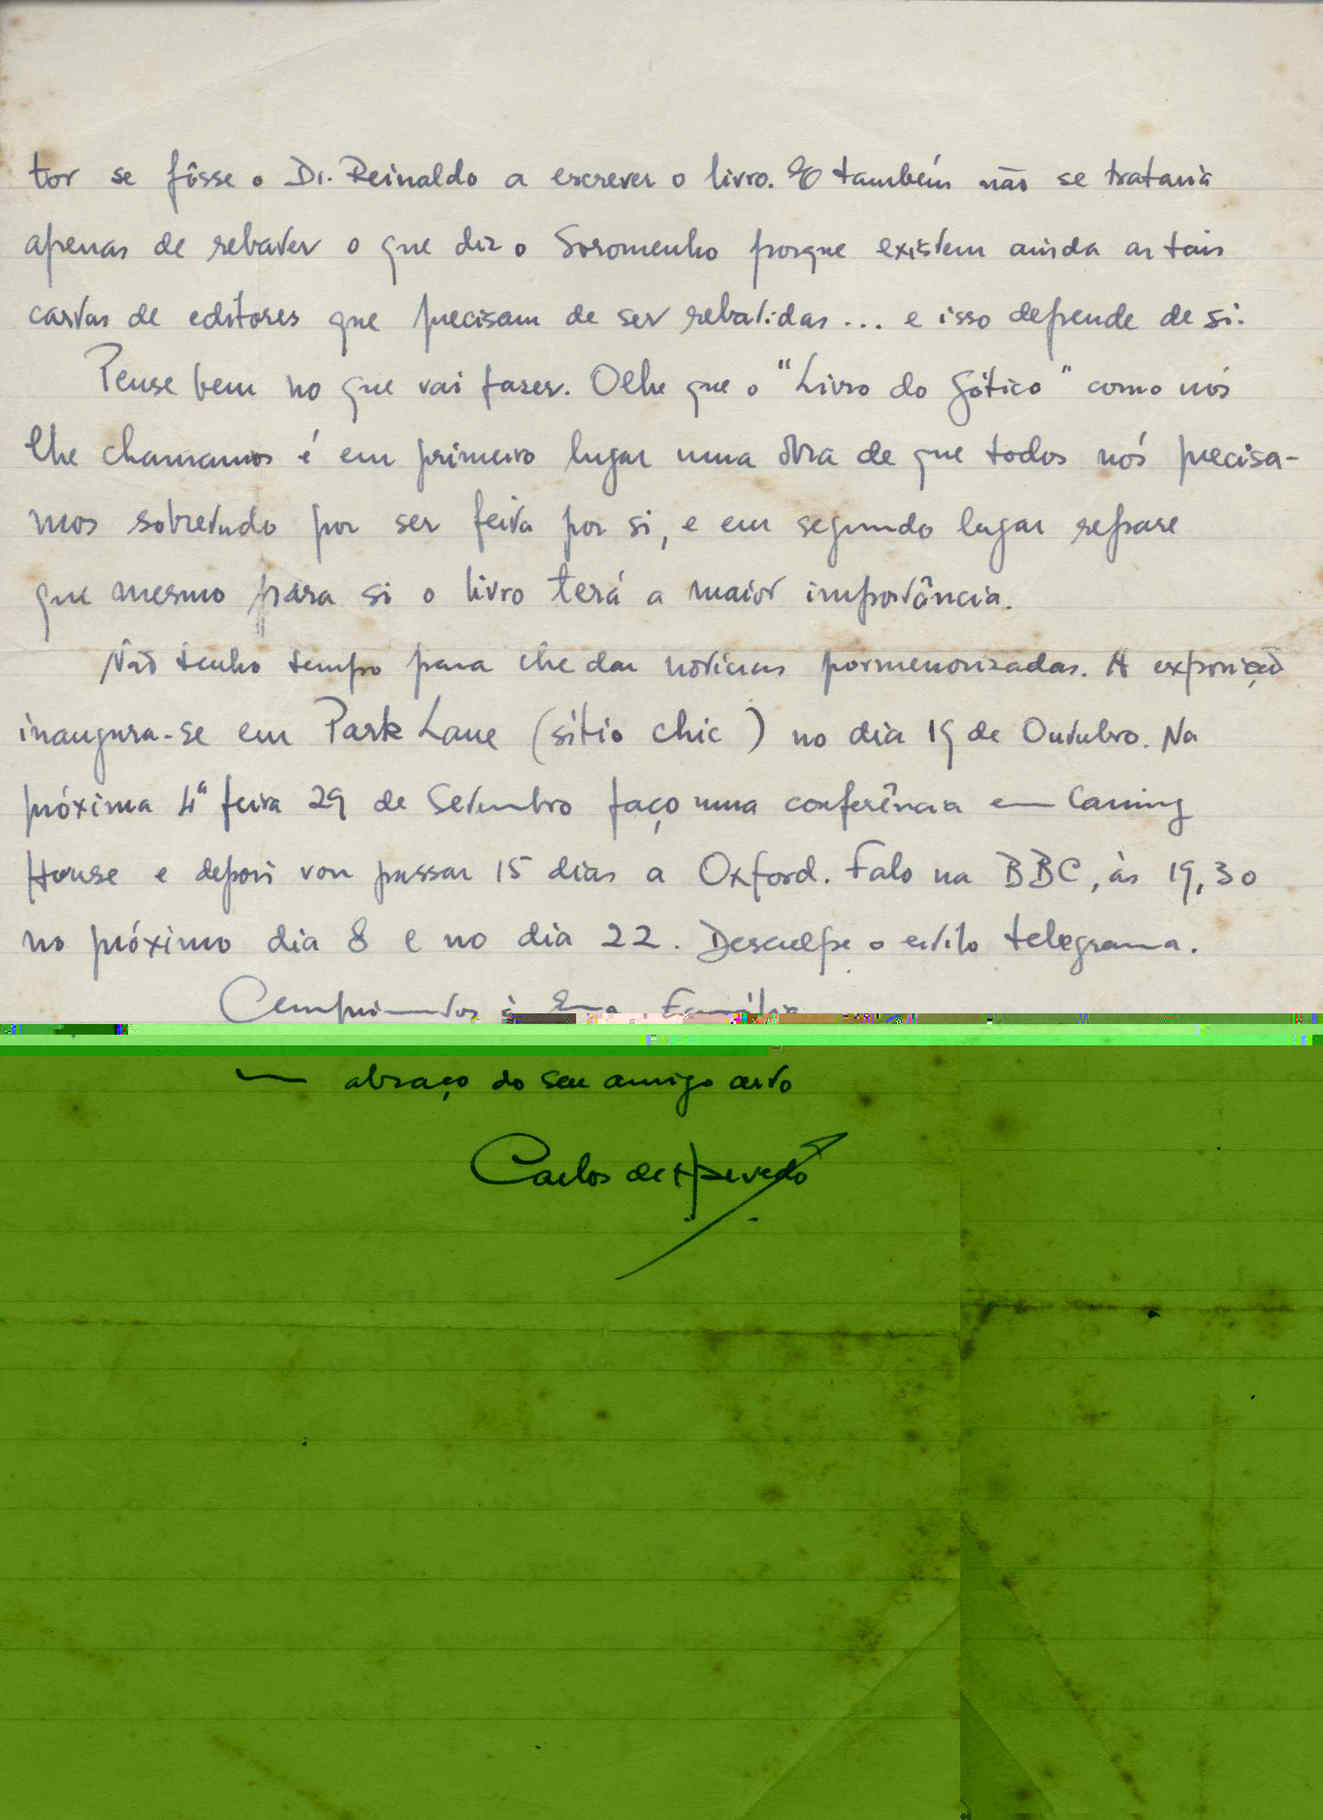 tor se fôsse o Dr. Reinaldo a escrever o livro. E também não se trataria
apenas de rebater o que diz o Soromenho porque existem ainda as tais
cartas de editores que precisam de ser rebatidas... e isso depende de si.
Pense bem no que vai fazer. Olhe que o "Livro do Gótico" como nós
lhe chamamos é em primeiro lugar uma obra de que todos nós precisa-
mos sobretudo por ser feita por si, e em segundo lugar repare
que mesmo para si o livro terá a maior importância.
Não tenho tempo para lhe dar notícias pormenorizadas. A exposição
inaugura-se em Park Lane (sítio chic) no dia 19 de Outubro. Na
próxima 4ª feira 29 de Setembro faço uma conferência em Canning
House e depois vou passar 15 dias a Oxford. Falo na BBC, às 19,30
no próximo dia 8 e no dia 22. Desculpe o estilo telegrama.
Cumprimentos à Sua Família
um abraço do seu amigo certo
Carlos de Azevedo